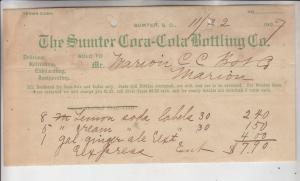 TERMS CASH.
SUMTER, S. C., 11/22 1907
The Sumter Coca-Cola Bottling Co.
Delicious
Refreshing
Exhilarating
Invigorating
SOLD TO
Mr. Marion C C Bot Co
Marion
8 M Lemon soda labels 30 2.40
5 " cream " 30 1.50
1 gal ginger ale Ext 4.00
Express Ent $7.90